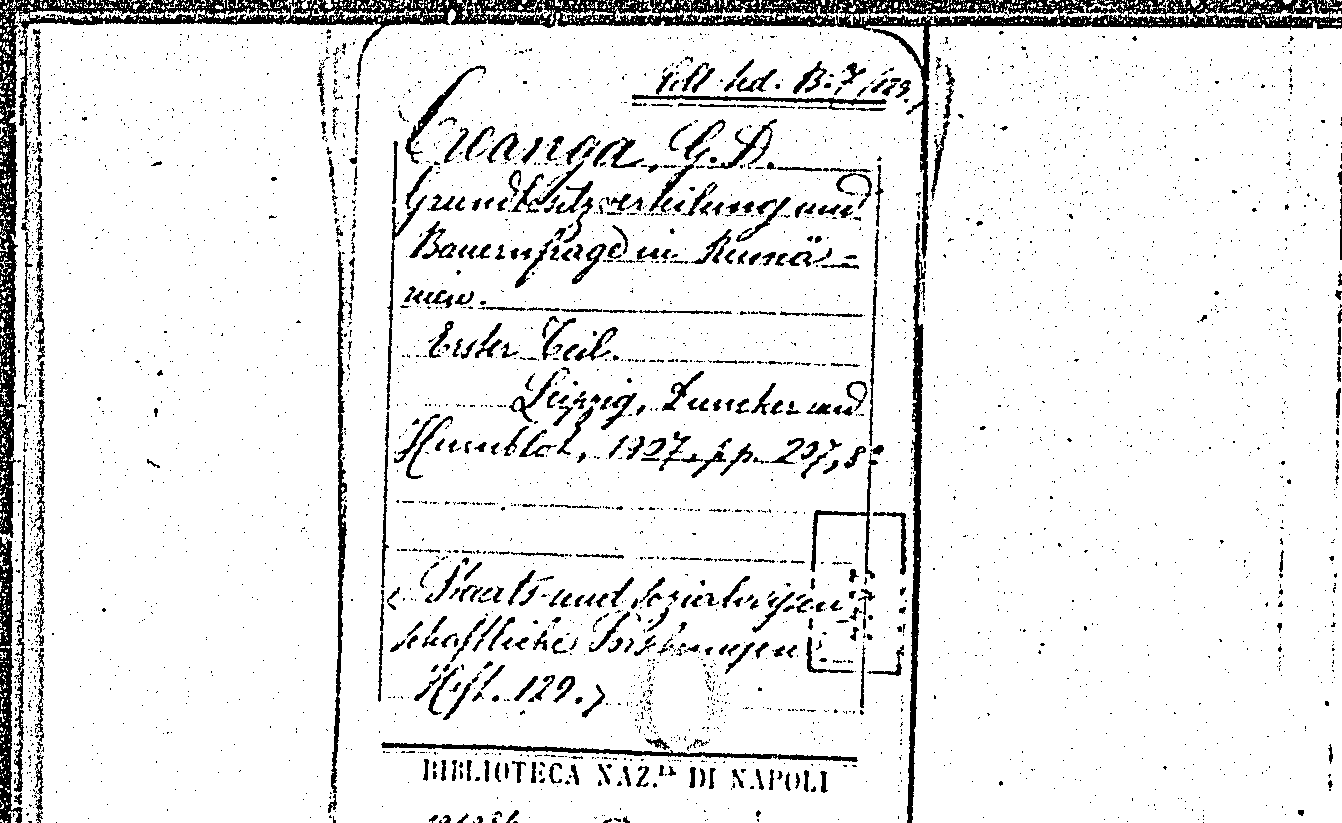 Coll. ted. B. 7 (129.)
Creanga, G.D.
Grundbesitzverteilung und
Bauernfrage in Rumä-
nien.
Erster Teil.
Leipzig, Duncker und
Humblot, 1907, pp. 207, 8°
< Staats- und sozialwissen
schaftliche Forschungen
Heft. 129. >
BIBLIOTECA NAZ.LE DI NAPOLI